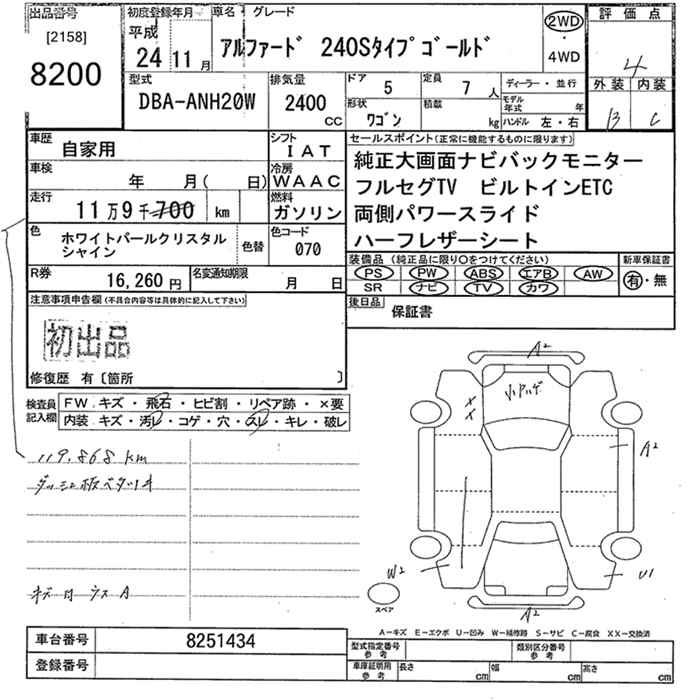 出品番号
[2158]
8200
初度登録年月
平成
24 11 月
車名 グレード
アルファード 240Sタイプゴールド
2WD
・
4WD
評価点
4
外装 内装
B C
型式
DBA-ANH20W
排気量
2400 CC
ドア 5
定員 7 人
形状 ワゴン
積載 kg
ディーラー・並行
モデル年式 年
ハンドル 左・右
車歴 自家用
シフト IAT
車検 年 月( 日)
冷房 WAAC
走行 11万9千700 km
燃料 ガソリン
色 ホワイトパールクリスタルシャイン
色替
色コード 070
R券 16,260円
名変通知期限 月 日
セールスポイント(正常に機能するものに限ります)
純正大画面ナビバックモニター
フルセグTV ビルトインETC
両側パワースライド
ハーフレザーシート
装備品 (純正品に限り○をつけてください)
PS PW ABS エアB AW
SR ナビ TV カワ
新車保証書
有・無
後日品 保証書
注意事項申告欄(不具合内容等は具体的に記入して下さい)
初出品
修復歴 有〔箇所 〕
検査員記入欄
FW キズ・飛石・ヒビ割・リペア跡・×要
内装 キズ・汚レ・コゲ・穴・スレ・キレ・破レ
119,868 km
A2
小アルゲ
X
X
A2
W2
U1
A2
スペア
A-キズ E-エクボ U-凹み W-補修跡 S-サビ C-腐食 XX-交換済
車台番号 8251434
登録番号
型式指定番号参考
類別区分番号参考
車庫証明用参考 長さ cm 幅 cm 高さ cm